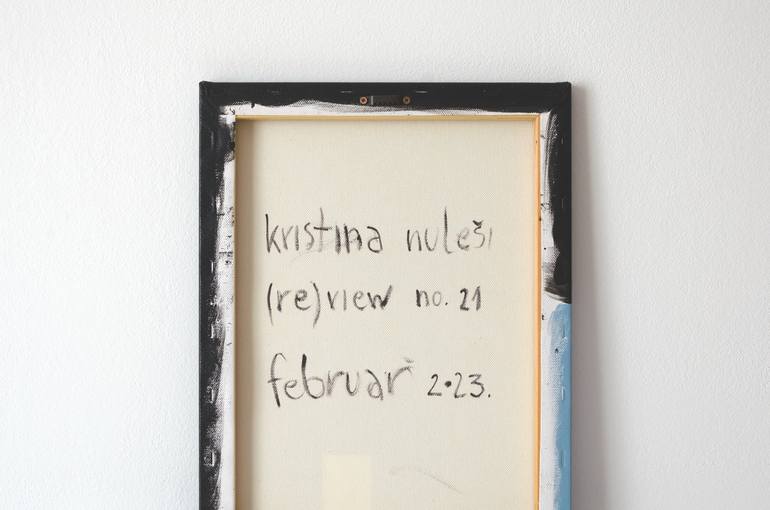 kristina nuleši
(re)view no. 21
februar 2•23.